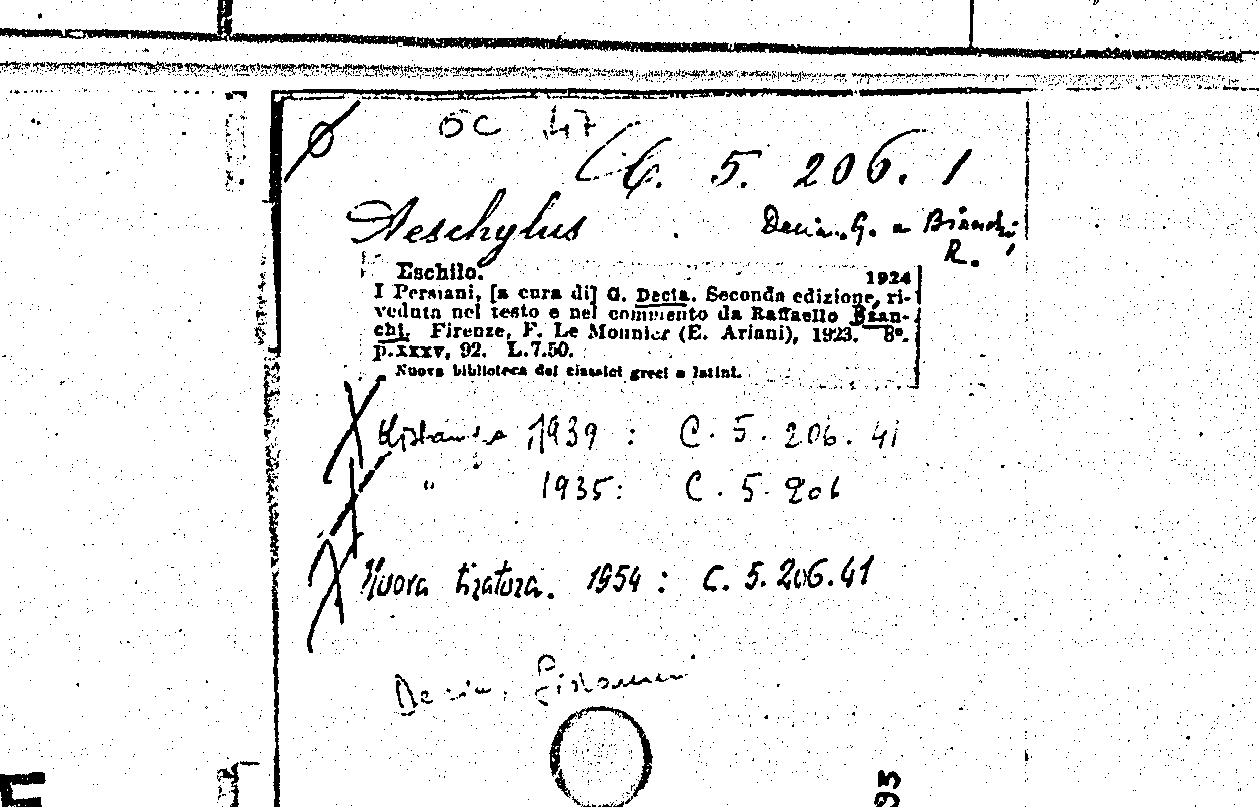 OC 47
C. 5. 206. 1
Aeschylus . Decia, G. e Bianchi, R.
Eschilo. 1924
I Persiani, [a cura di] G. Decia. Seconda edizione, ri-
veduta nel testo e nel commento da Raffaello Bian-
chi. Firenze, F. Le Monnier (E. Ariani), 1923. 8°.
p.xxxv, 92. L.7.50.
Nuova biblioteca dei classici greci e latini.
Ristampa 1939 : C. 5. 206. 41
" 1935: C. 5. 206
Nuova tiratura. 1954 : C. 5. 206. 41
Decia, Giovanni
95